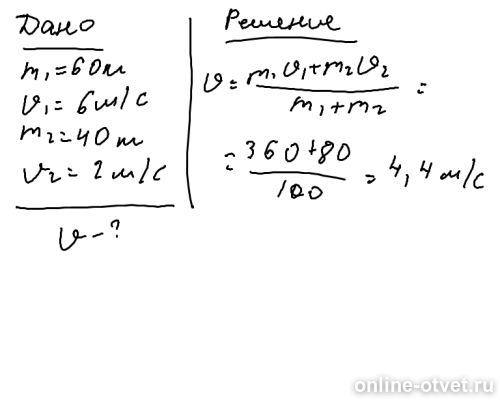 Дано
m₁=60т
v₁=6м/с
m₂=40т
v₂=2м/с
v-?
Решение
v=(m₁v₁+m₂v₂)/(m₁+m₂)=
=(360+80)/100=4,4м/с
online-otvet.ru